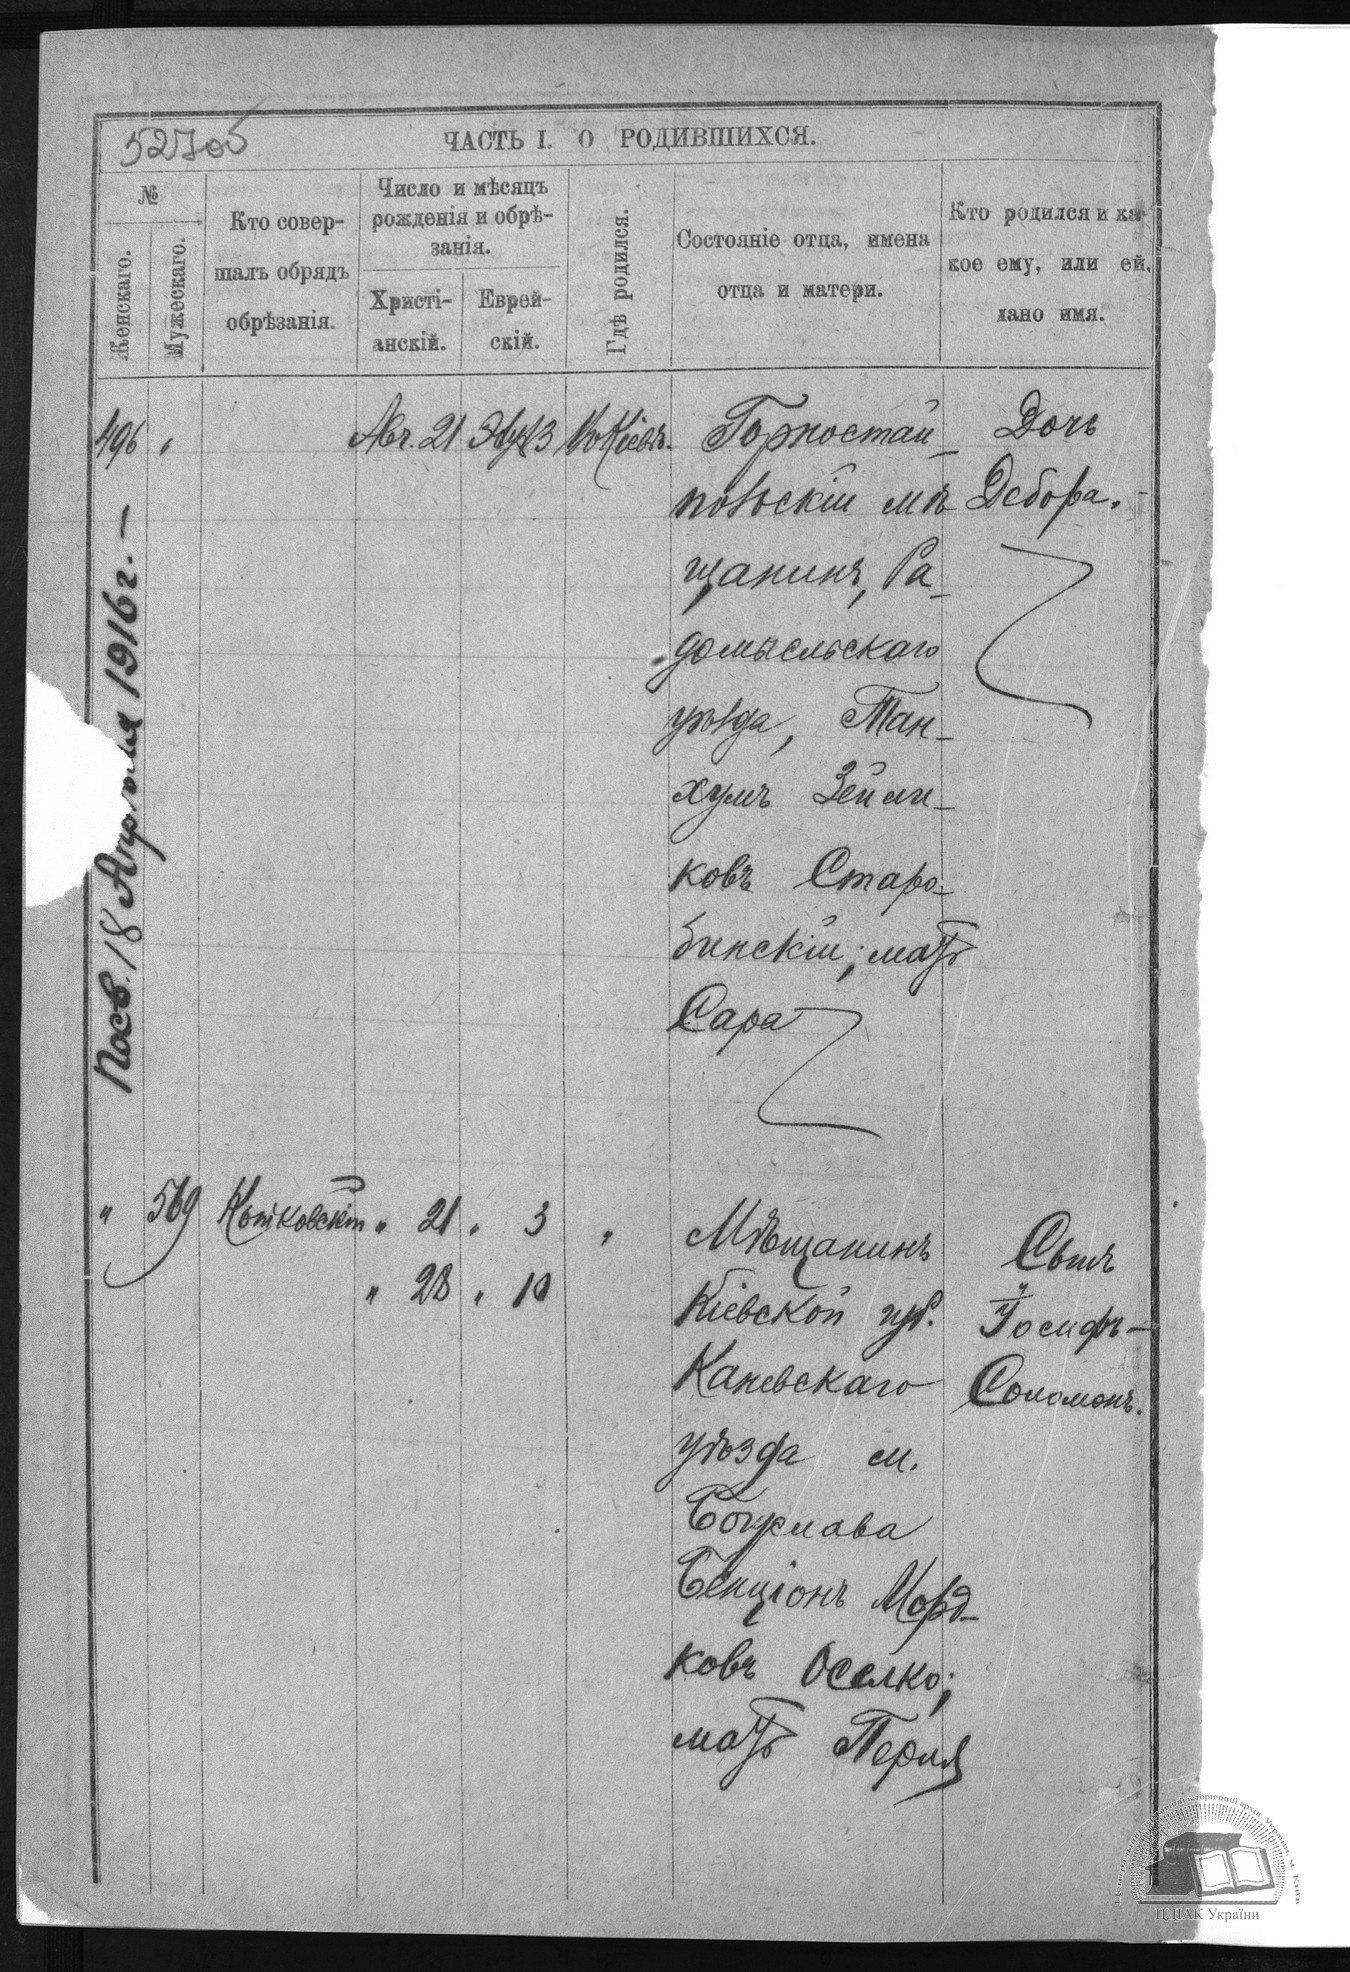 527об
ЧАСТЬ I. О РОДИВШИХСЯ.
№
Женскаго.
Мужескаго.
Кто совер-
шалъ обрядъ
обрѣзанія.
Число и мѣсяцъ
рожденія и обрѣ-
занія.
Христі-
анскій.
Еврей-
скій.
Гдѣ родился.
Состояніе отца, имена
отца и матери.
Кто родился и ка-
кое ему, или ей,
дано имя.
496 " Авг. 21 3
Горностай-
польскій мѣ-
щанинъ, Ра-
домысльскаго
уѣзда, Тан-
хумъ Зейли-
ковъ Старо-
бинскій; мать
Сара
Дочь
Дебора.
Посв. 18 Апрѣля 1916 г. —
" 569 " 21 " 3 "
" 28 " 10
Мѣщанинъ
Кіевской губ.
Каневскаго
уѣзда м.
Богуслава
Бенціонъ Морд-
ковъ Оселко;
мать Перля
Сынъ
Іосифъ-
Соломонъ.
ЦДІАК України